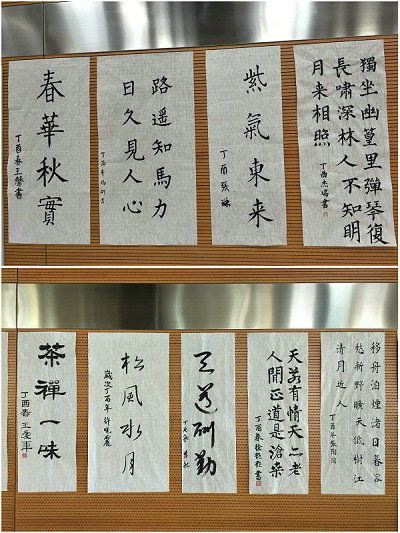 獨坐幽篁里彈琴復
長嘯深林人不知明
月来相照
丁酉
紫氣東来
丁酉張琳
路遥知馬力
日久見人心
丁酉年
春華秋實
丁酉春王馨書
移舟泊煙渚日暮客
愁新野曠天低樹江
清月近人
丁酉年
天若有情天亦老
人間正道是滄桑
丁酉春徐
天道酬勤
丁酉
松風水月
歲次丁酉年許
茶禪一味
丁酉春王